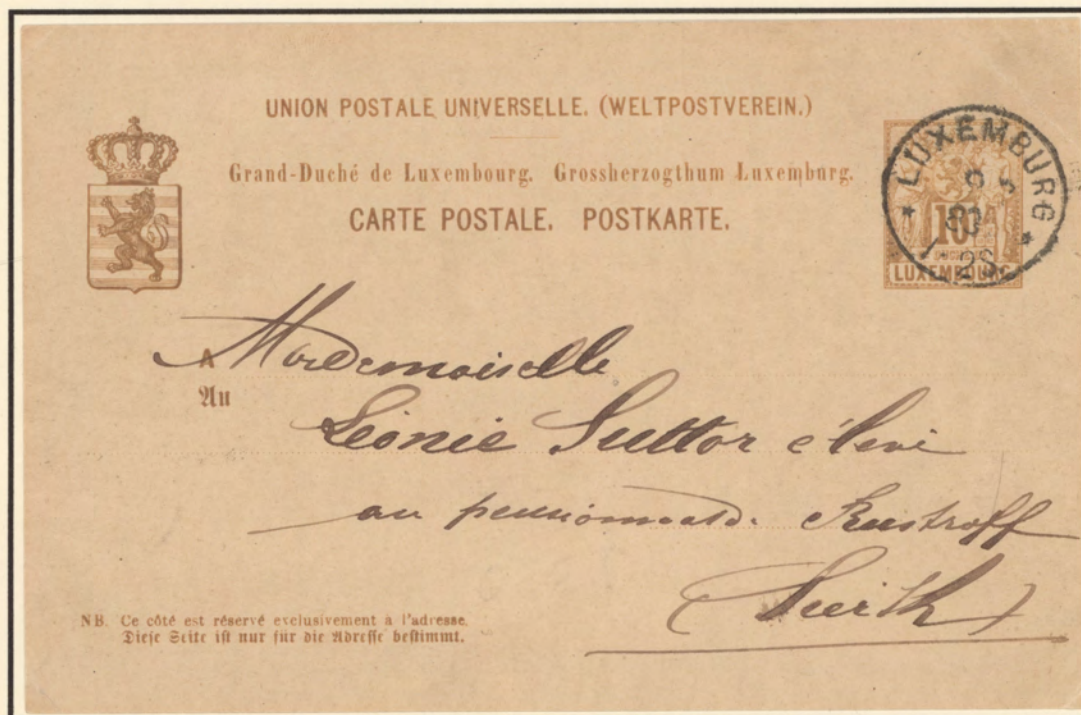 UNION POSTALE UNIVERSELLE. (WELTPOSTVEREIN.)
Grand-Duché de Luxembourg. Grossherzogthum Luxemburg.
CARTE POSTALE. POSTKARTE.
LUXEMBURG
10
LUXEMBOURG
A Mademoiselle
An
Léonie Suttor élève
au pensionnat de Rustroff
NB. Ce côté est réservé exclusivement à l'adresse.
Diese Seite ist nur für die Adresse bestimmt.